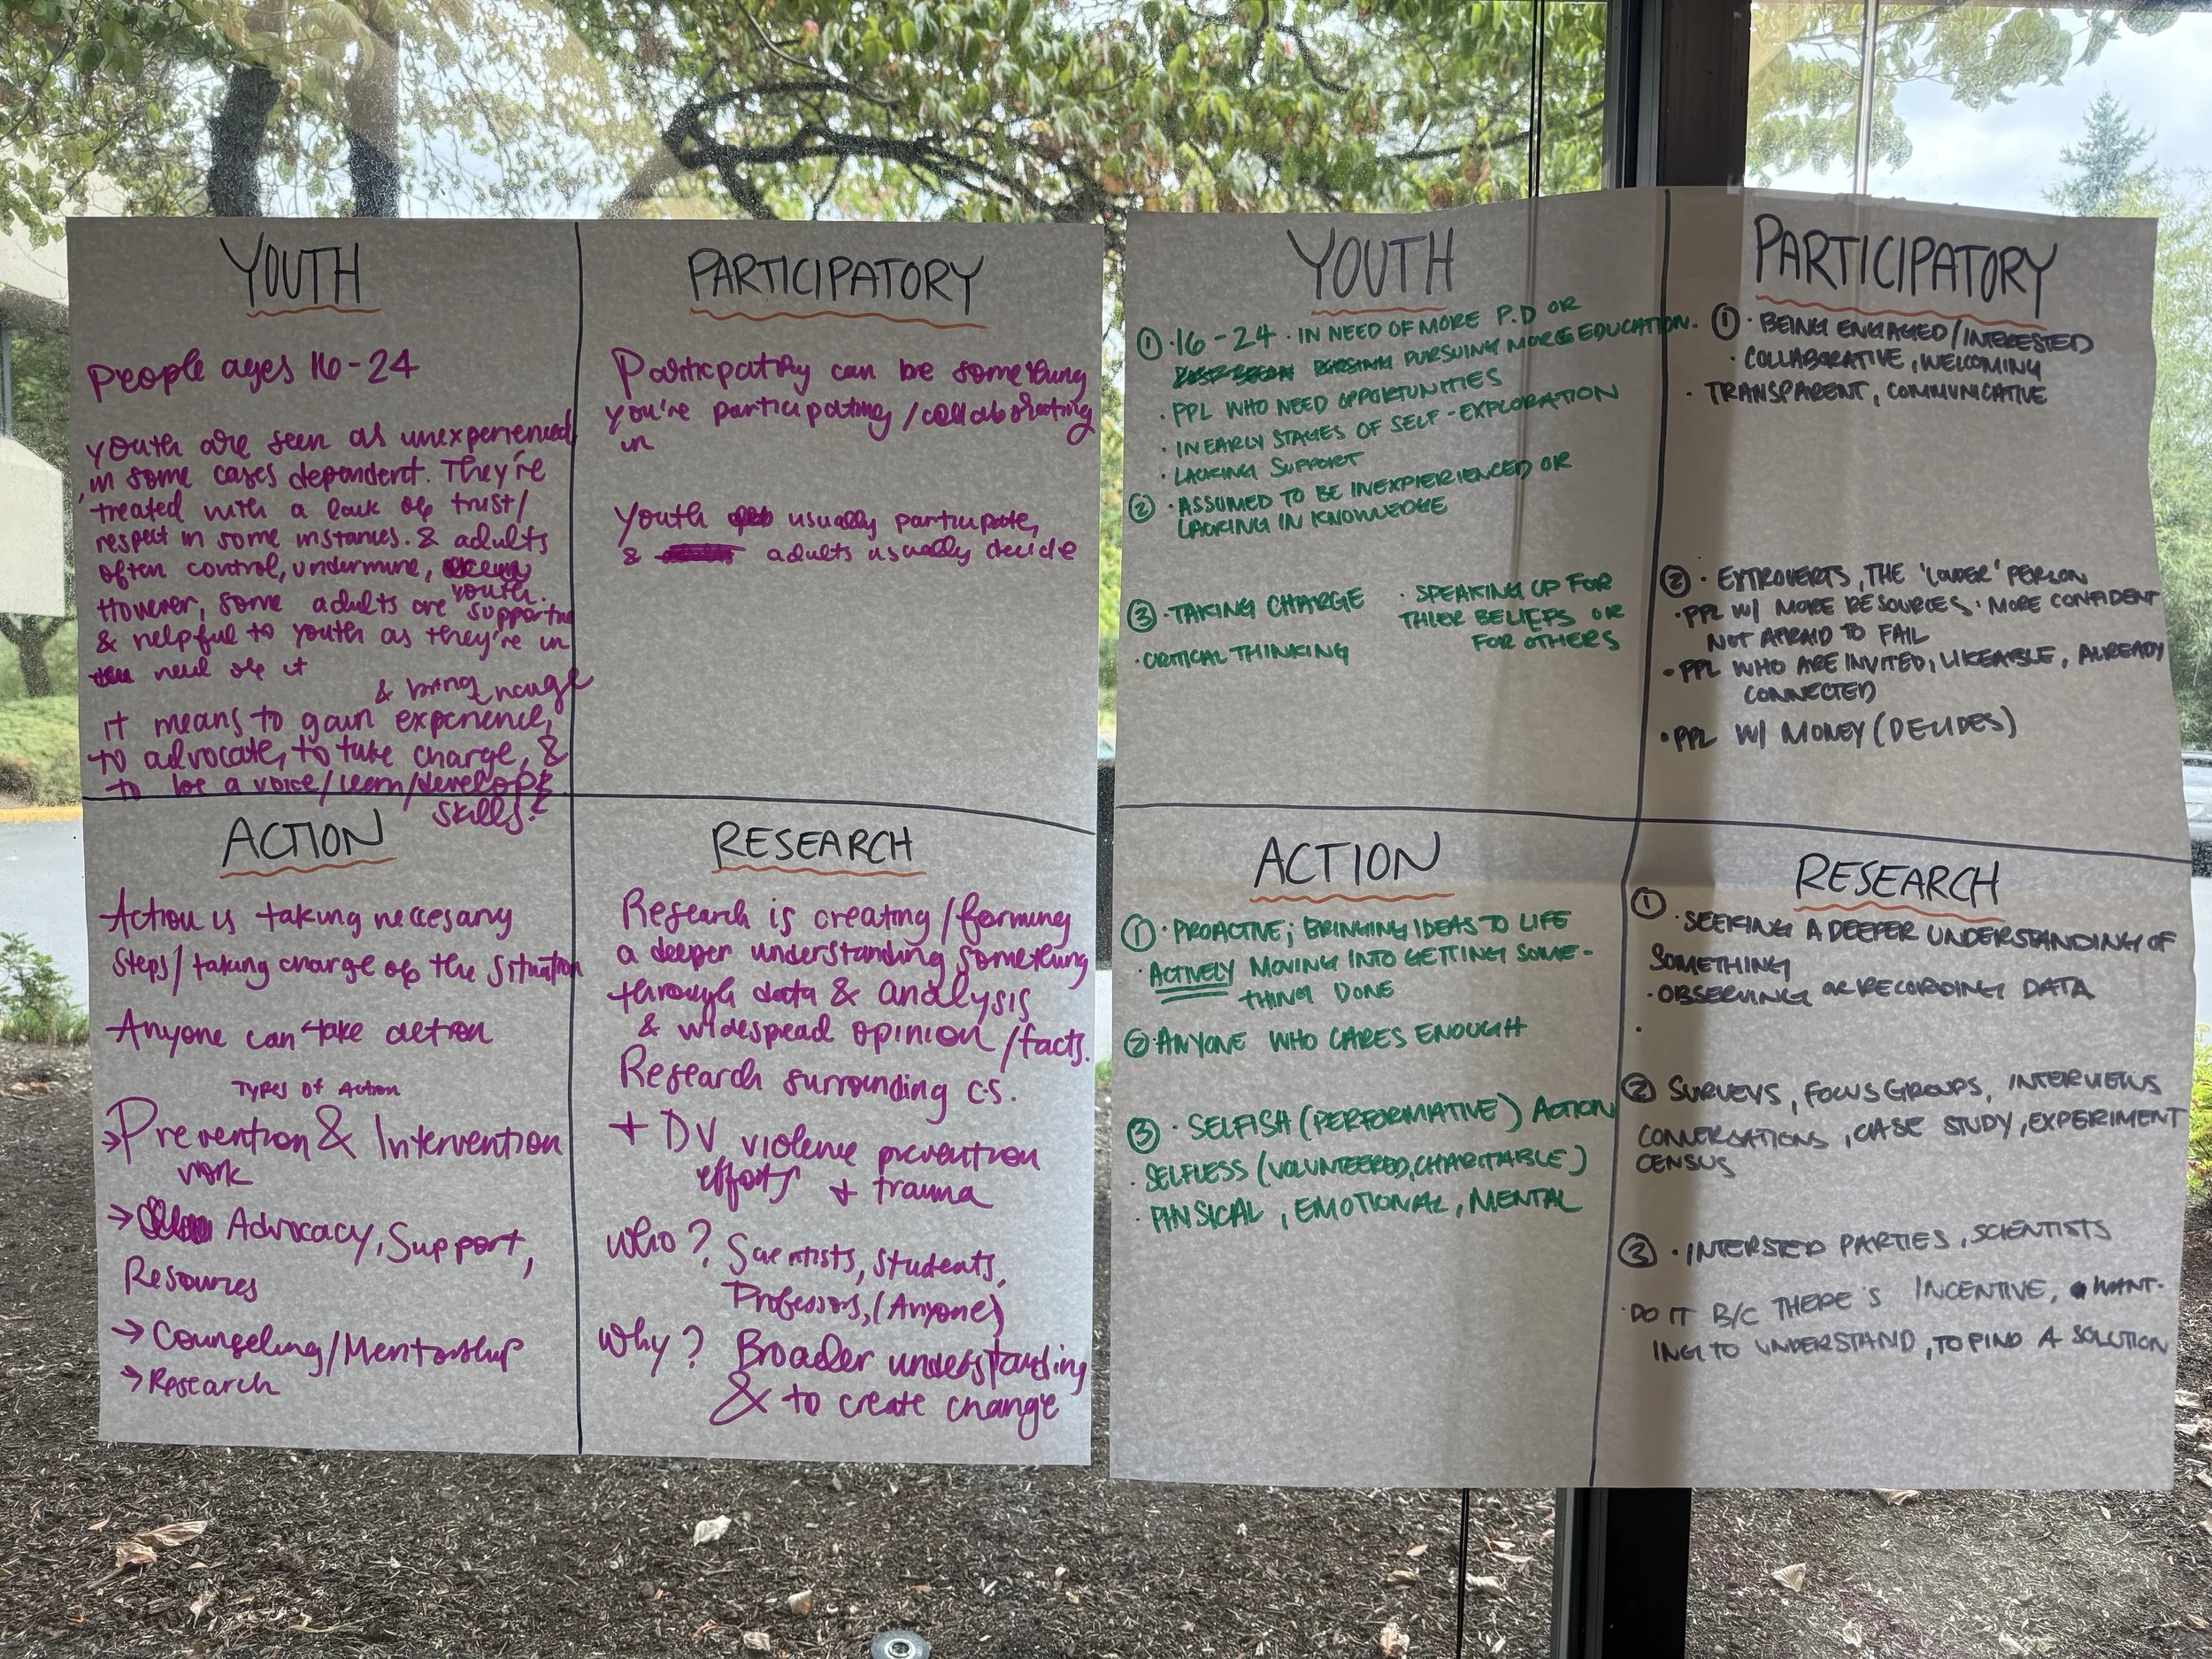 YOUTH
People ages 16-24
Youth are seen as unexperienced,
in some cases dependent. They're
treated with a lack of trust/
respect in some instances. & adults
often control, undermine,
youth.
However, some adults are supportive
& helpful to youth as they're in
need of it
& bring
it means to gain experience,
to advocate, to take charge, &
to be a voice/learn/develop
skills!
PARTICIPATORY
Participatory can be something
you're participating/collaborating
in
Youth usually participate,
& adults usually decide
ACTION
Action is taking neccesary
Steps/taking charge of the situation
Anyone can take action
Types of Action
→Prevention & Intervention
work
→ Advocacy, Support,
Resources
→ Counseling/Mentorship
→ Research
RESEARCH
Research is creating/forming
a deeper understanding something
through data & analysis
& widespread opinion/facts.
Research surrounding c.s.
+ DV violence prevention
efforts + trauma
Who? Scientists, Students,
Professors, (Anyone)
Why? Broader understanding
& to create change
YOUTH
① · 16-24 · IN NEED OF MORE P.D OR
PURSUING MORE EDUCATION.
· PPL WHO NEED OPPORTUNITIES
· IN EARLY STAGES OF SELF-EXPLORATION
· LACKING SUPPORT
② · ASSUMED TO BE INEXPIERIENCED OR
LACKING IN KNOWLEDGE
③ · TAKING CHARGE
· CRITICAL THINKING
· SPEAKING UP FOR
THIER BELIEFS OR
FOR OTHERS
PARTICIPATORY
① · BEING ENGAGED/INTERESTED
· COLLABORATIVE, WELCOMING
· TRANSPARENT, COMMUNICATIVE
② · EXTROVERTS, THE 'LOUDER' PERSON
· PPL W/ MORE RESOURCES · MORE CONFIDENT
NOT AFRAID TO FAIL
· PPL WHO ARE INVITED, LIKEABLE, ALREADY
CONNECTED
· PPL W/ MONEY (DECIDES)
ACTION
① · PROACTIVE; BRINGING IDEAS TO LIFE
· ACTIVELY MOVING INTO GETTING SOME-
THING DONE
② ANYONE WHO CARES ENOUGH
③ · SELFISH (PERFORMATIVE) ACTION
· SELFLESS (VOLUNTEERED, CHARITABLE)
· PHYSICAL, EMOTIONAL, MENTAL
RESEARCH
① · SEEKING A DEEPER UNDERSTANDING OF
SOMETHING
· OBSERVING OR RECORDING DATA
·
② SURVEYS, FOCUS GROUPS, INTERVIEWS
CONVERSATIONS, CASE STUDY, EXPERIMENT
CENSUS
③ · INTERSTED PARTIES, SCIENTISTS
· DO IT B/C THERE'S INCENTIVE, WANT-
ING TO UNDERSTAND, TO FIND A SOLUTION